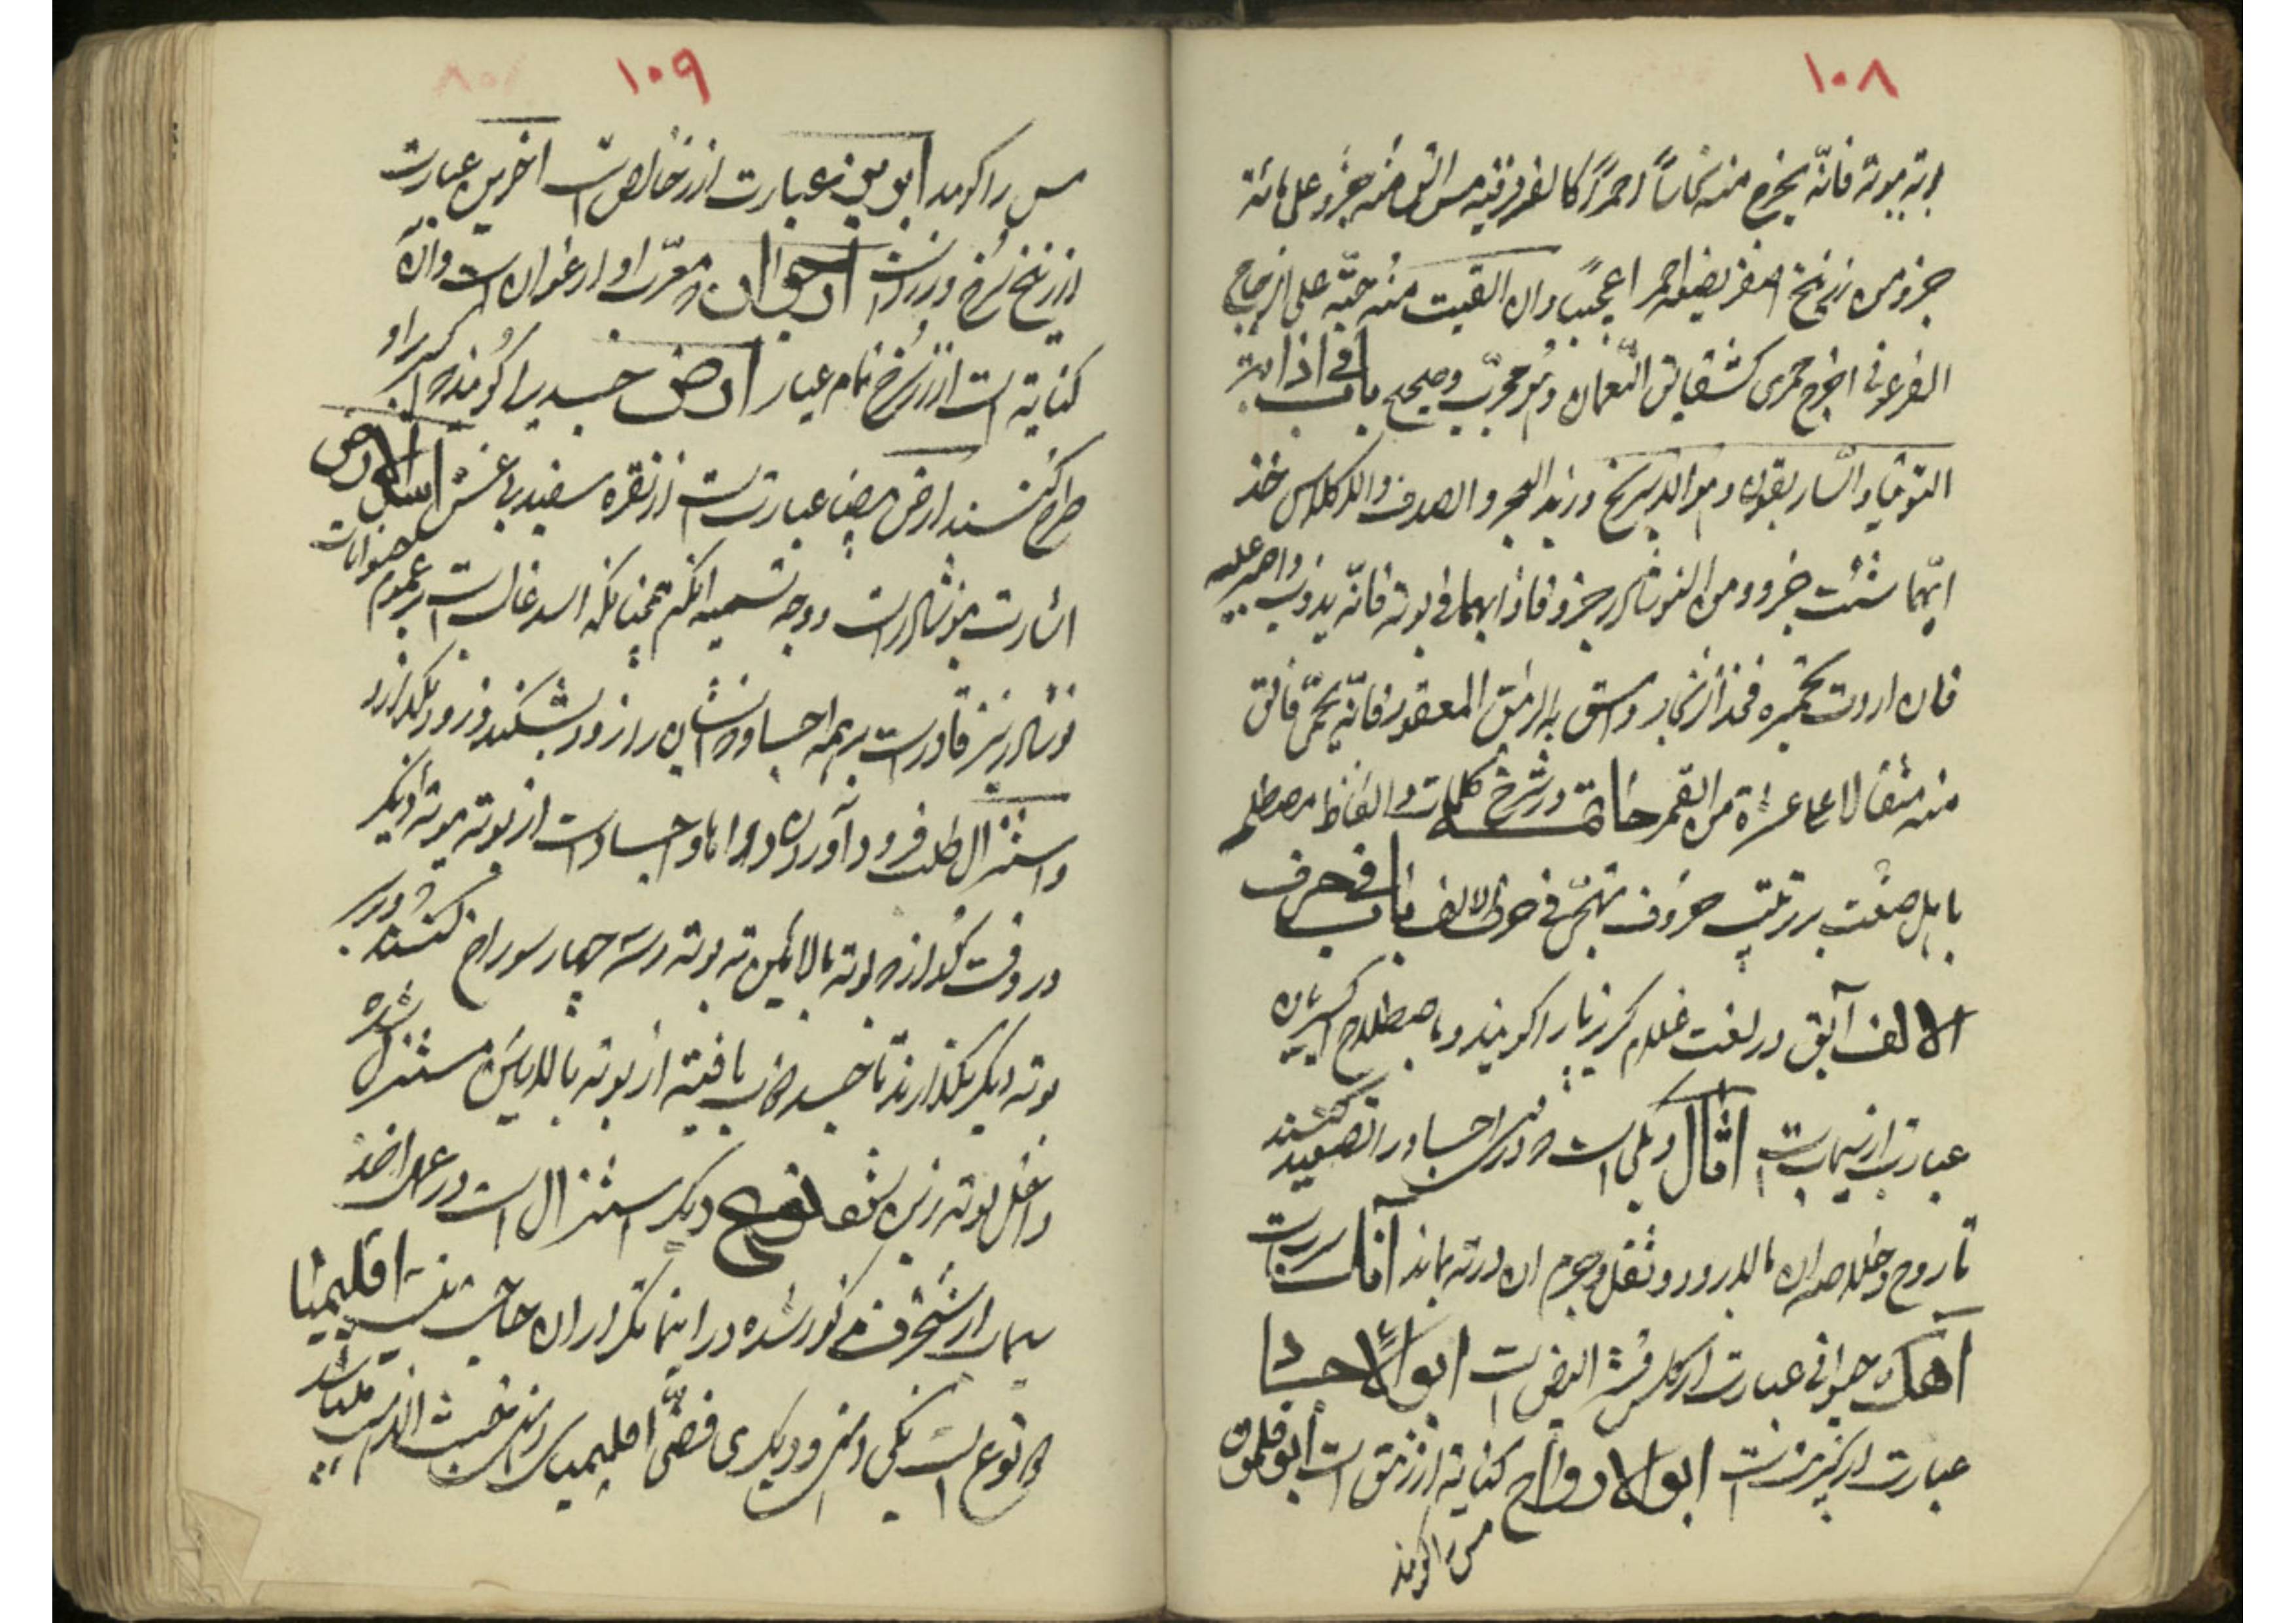 ۱۰۸
بوته ببوته فانّه یخرج منه نحاساً احمراً کالفرفیر منه جزو علی مائة
جزو من زرنیخ اصفر یصبغه احمراً عجیباً وان القیت منه حبّة علی الزجاج
الفرعونی اخرج خمری کشقایق النّعمان وهو مجرّب وصحیح باب فی اذابة
التوتیا والشاربقون وهو المرتخ وزبد البحر والصدف والکلس خذ
ایّهما شئت جزو ومن النوشادر جزو فاذابهما فی بوته فانّه یذوب واصبر علیه
فان اردت تحمیره فخذ الزنجار واسق به الزیبق المعقود فانّه یحمّر فالق
منه مثقالا علی عشرة من القمر خاتمه در شرح کلمات والفاظ مصطلح
باهل صنعت بر ترتیب حروف تهجّی فی حرف الالف باب فی حرف
الالف آبق در لغت غلام گریزپا را گویند و باصطلاح اکسیریان
عبارت از سیماب است اثال دیگی است که در آن اجساد را تصعید کنند
تا روح و خلاصه آن بالا رود و ثقل و جرم آن در ته بماند آنک سرب است
آهک حیوانی عبارت از کلس قشر البیض است ابوالاجساد
عبارت از کبریت است ابوالارواح کنایه از زیبق است ابوقلمون
مس را گویند
۱۰۹
مس را گویند عبارت از زر خالص است عبارت
از زرنیخ سرخ و زر است ارجوان معرّب او ارغوان است و آن
کنایة است از زر سرخ تمام عیار ارض جسدی را گویند که اکسیر را بر او
طرح کنند ارض بیضا عبارت است از نقره سفید بی غش اسدالارض
اشارت بنوشادر است و وجه تسمیه آنکه همچنانکه اسد غالب است بر عموم حیوانات
نوشادر نیز قادر است بر همه اجساد و ایشان را زود بشکند و زود بگدازد
و استنزال طلب فرود آوردن دواها و اجساد است از بوته ببوته دیگر
در وقت گداز که بوته بالائین ته بوته در سه چهار سوراخ کنند و بر سر
بوته دیگر بگذارند تا جسد ذوب یافته از بوته بالا پائین مستنزل شده
داخل بوته زیرین شود نوع دیگر استنزال است در عمل اخذ
سیماب از شنجرف مذکور شده در اینجا تکرار آن حاجت نیست اقلیمیا
دو نوع است یکی ذهبی و دیگری فضّی اقلیمیای ذهبی خبث الذهب میباشد